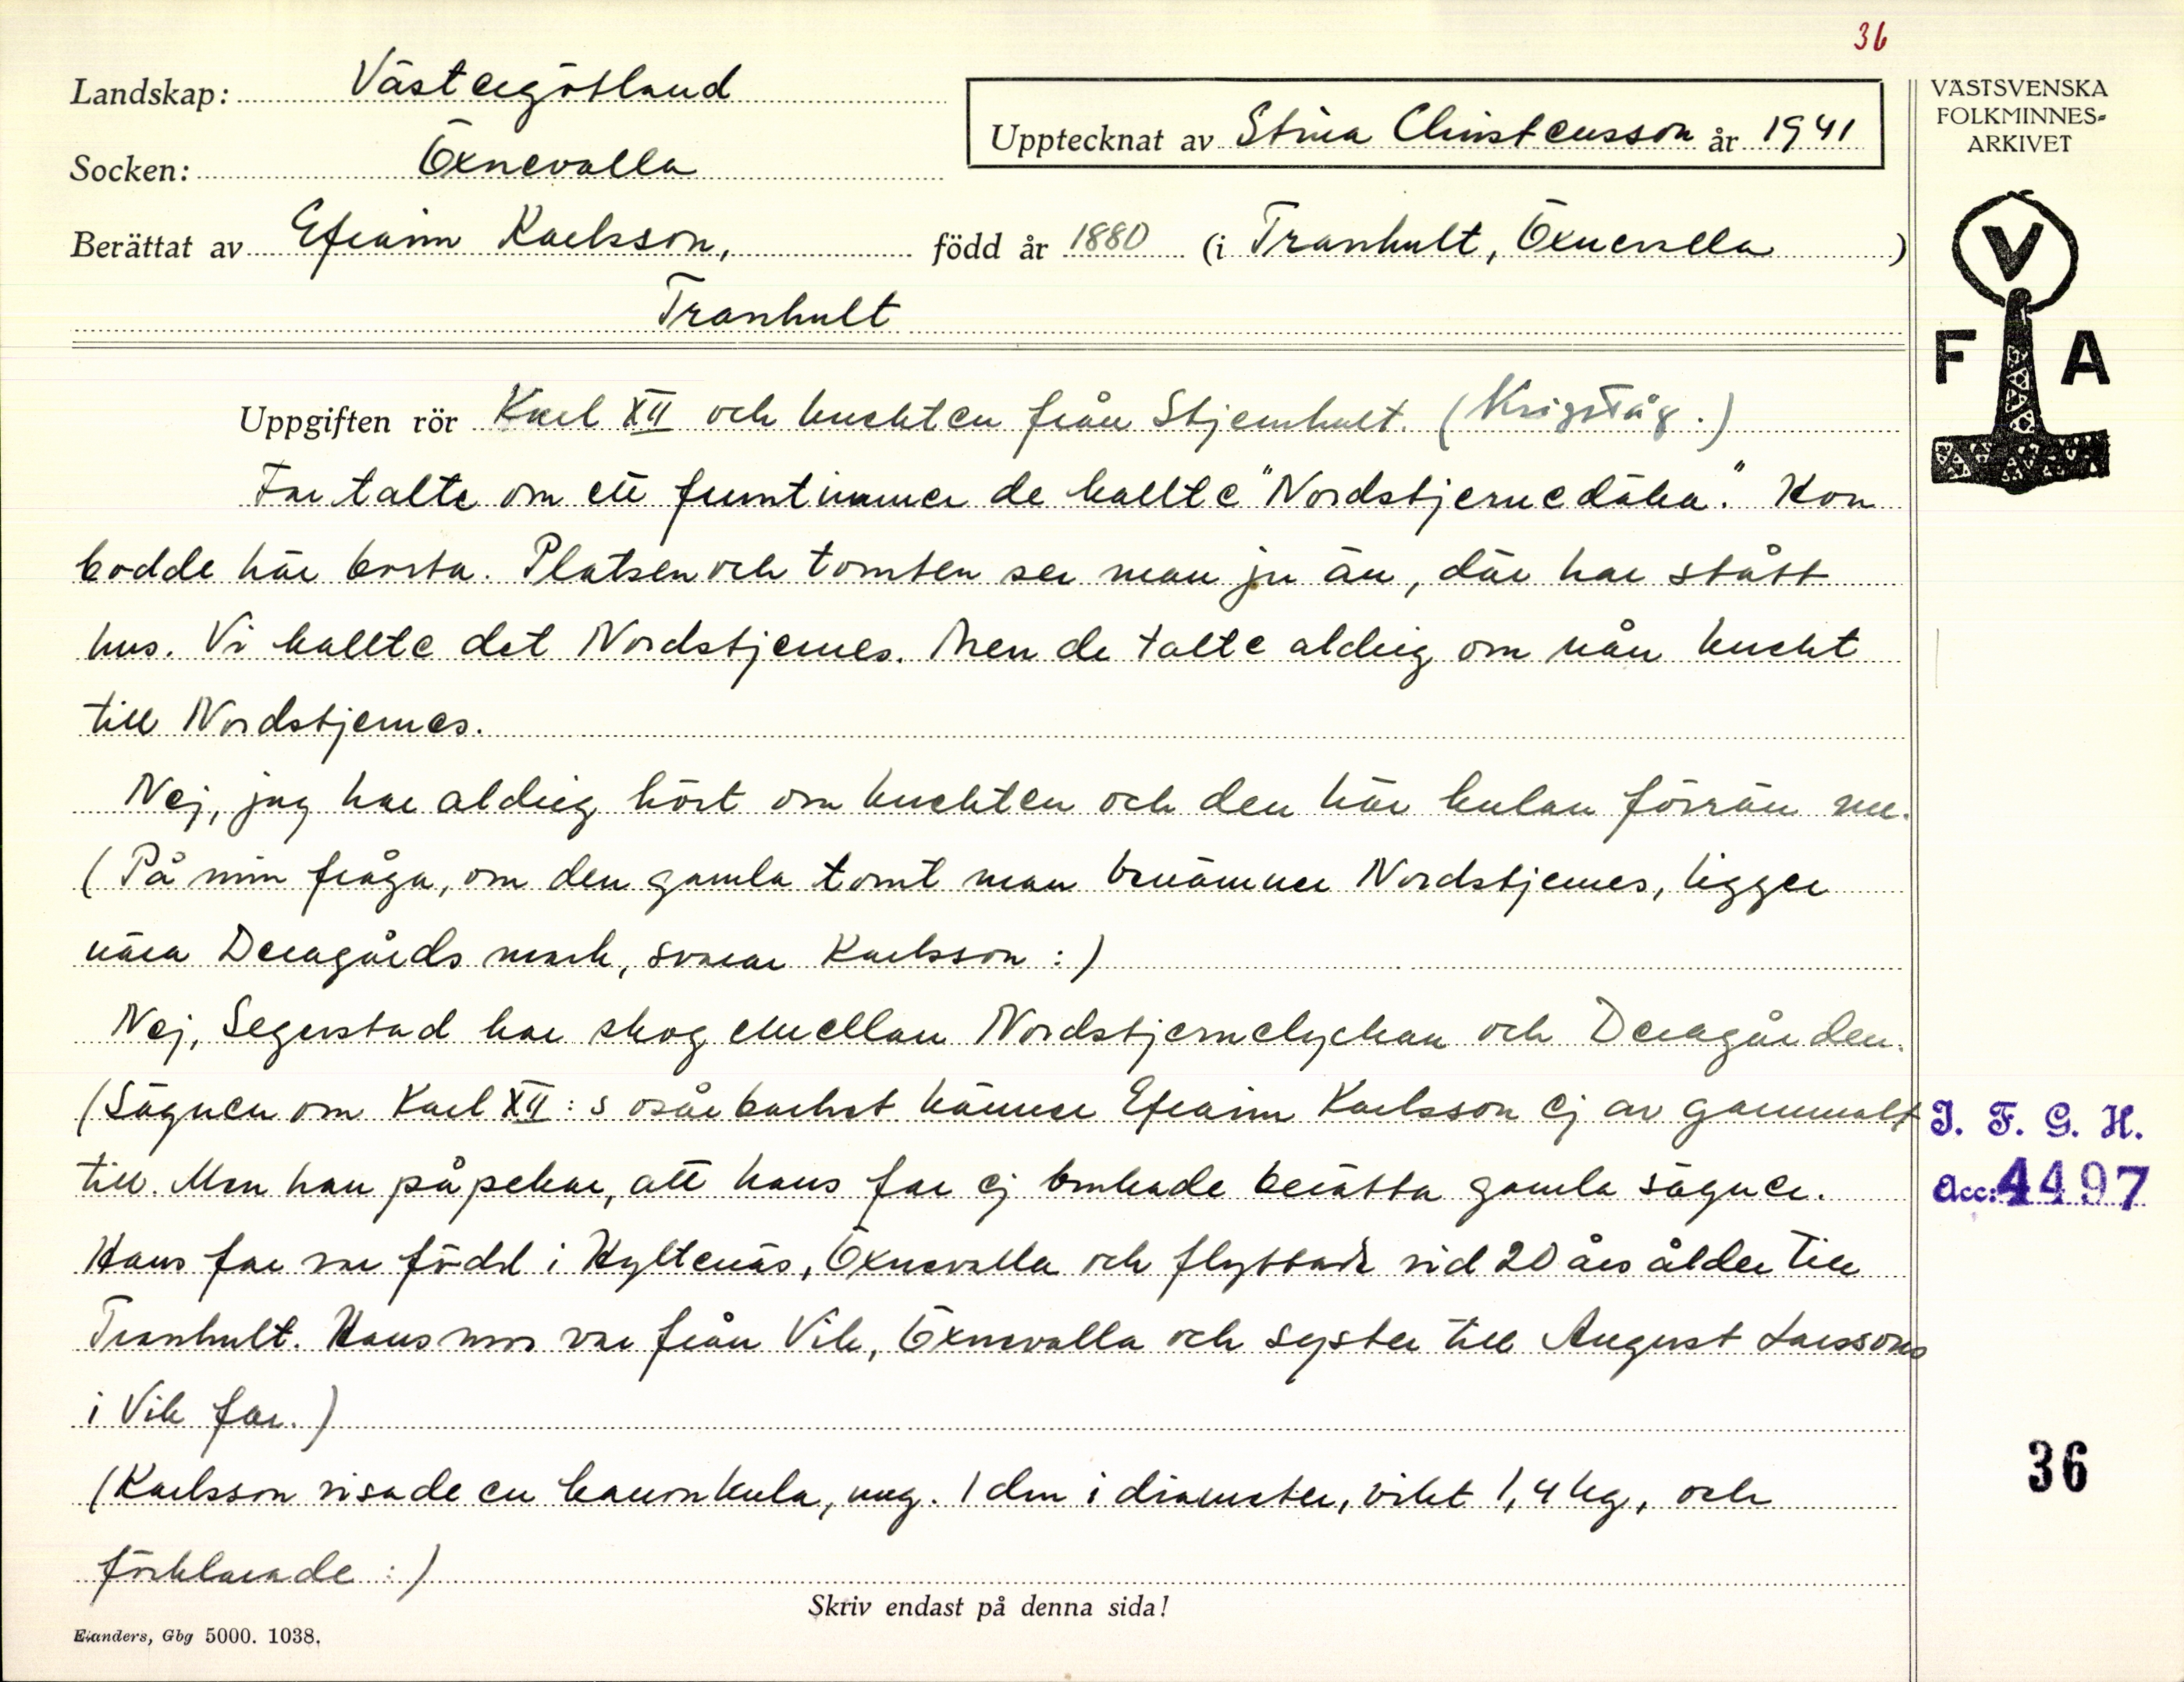 36
Landskap: Västergötland
Socken: Öxnevalla
Upptecknat av Stina Christensson år 1941
Berättat av Efraim Karlsson, född år 1880 (i Tranhult, Öxnevalla)
Tranhult
VÄSTSVENSKA
FOLKMINNES-
ARKIVET
V
F A
Uppgiften rör Karl XII och knekten från Stjernhult. (Krigståg.)
Far talte om ett fruntimmer de kallte "Nordstjernedåka." Hon
bodde här borta. Platsen och tomten ser man ju än, där har stått
hus. Vi kallte det Nordstjernes. Men de talte aldrig om nån knekt
till Nordstjernes.
Nej, jag har aldrig hört om knekten och den här kulan förrän nu.
(På min fråga, om den gamla tomt man benämner Nordstjernes, ligger
nära Deragårds mark, svarar Karlsson:)
Nej, Segerstad har skog emellan Nordstjernelyckan och Deragården.
(Sägnen om Karl XII:s osårbarhet känner Efraim Karlsson ej av gammalt
till. Men han påpekar, att hans far ej brukade berätta gamla sägner.
Hans far var född i Hyltenäs, Öxnevalla och flyttade vid 20 års ålder till
Tranhult. Hans mor var från Vik, Öxnevalla och syster till August Larssons
i Vik far.)
(Karlsson visade en kanonkula, ung. 1 dm i diameter, vikt 1,4 kg, och
förklarade:)
I. F. G. H.
Acc: 4497
36
Skriv endast på denna sida!
Elanders, Gbg 5000. 1038.